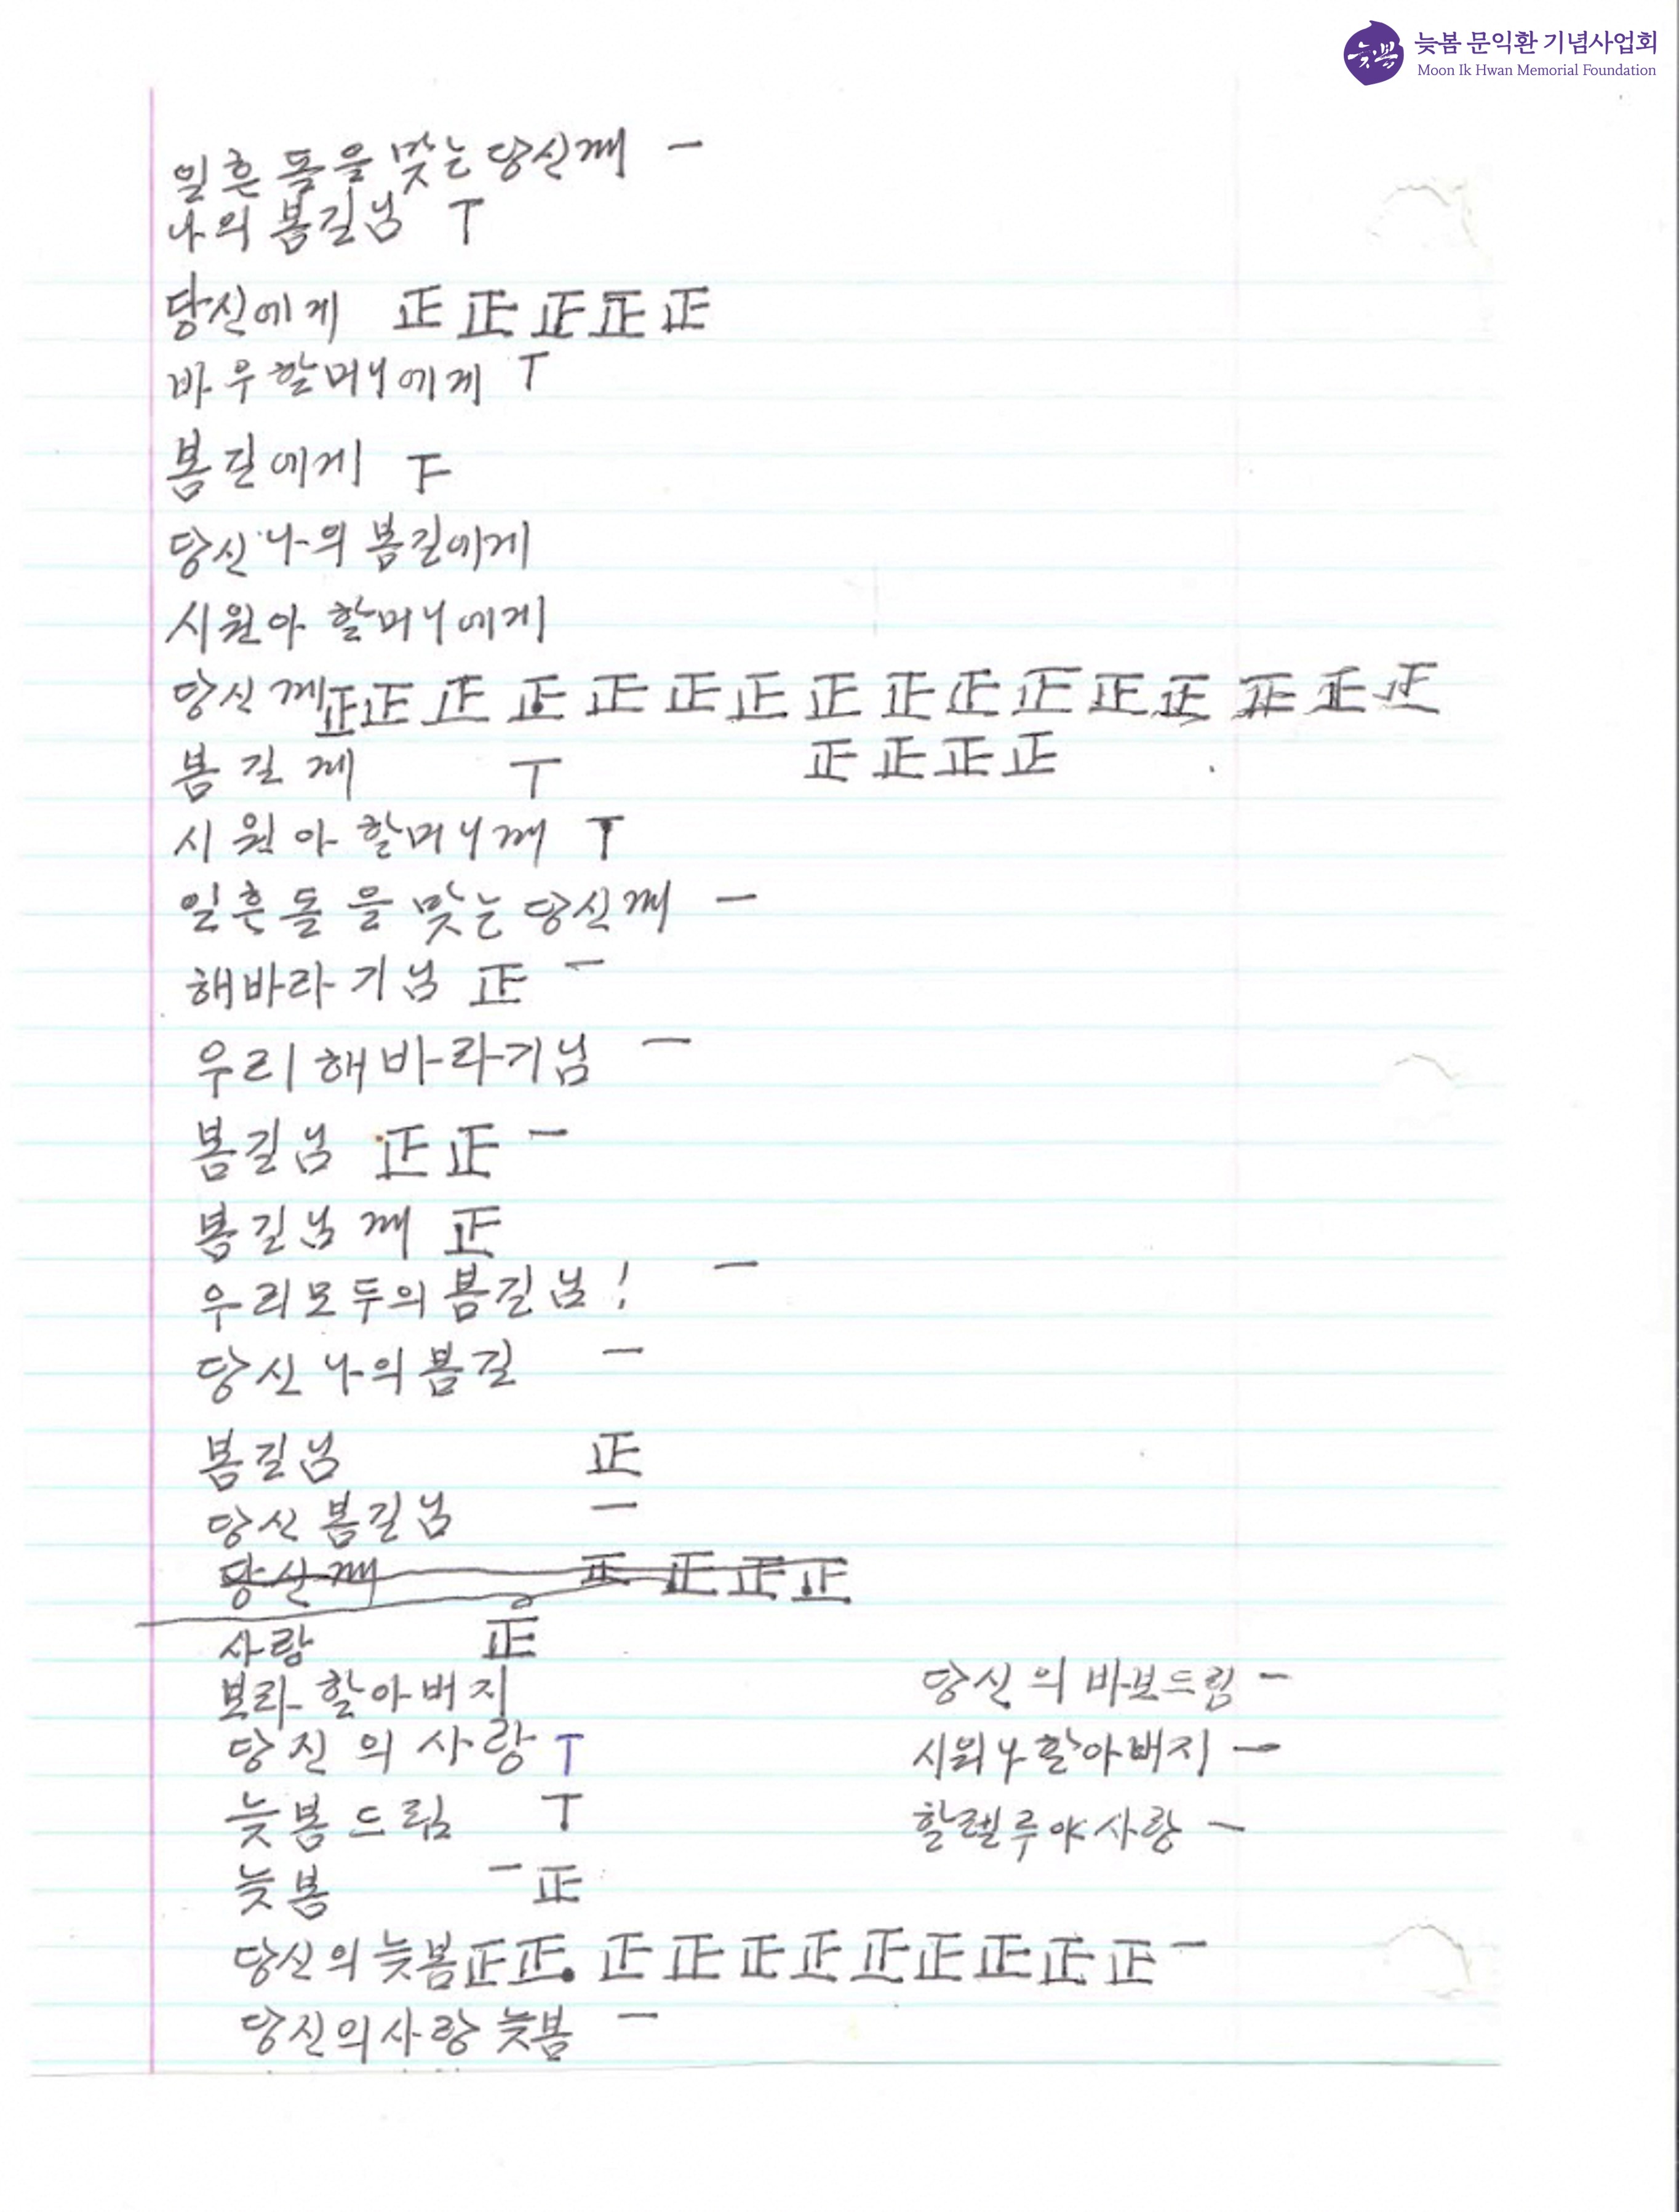 늦봄 문익환 기념사업회
Moon Ik Hwan Memorial Foundation
일흔 돌을 맞는 당신께 一
나의 봄길님 丅
당신에게 正 正 正 正 正
바우할머니에게 丅
봄길에게 下
당신 나의 봄길에게
시원아 할머니에게
당신께 正 正 正 正 正 正 正 正 正 正 正 正 正 正 正 正
正 正 正 正
봄길께 丅
시원아 할머니께 丅
일흔돌을 맞는 당신께 一
해바라기님 正 一
우리 해바라기님 一
봄길님 正 正 一
봄길님께 正
우리모두의 봄길님! 一
당신 나의 봄길 一
봄길님 正
당신 봄길님 一
당신께 正 正 正 正
사랑 正
보라 할아버지
당신의 사랑 丅
늦봄 드림 丅
늦봄 一 正
당신의 늦봄 正 正 正 正 正 正 正 正 正 正 正 一
당신의 사랑 늦봄 一
당신의 바보드림 一
할아버지 一
할렐루야 사랑 一